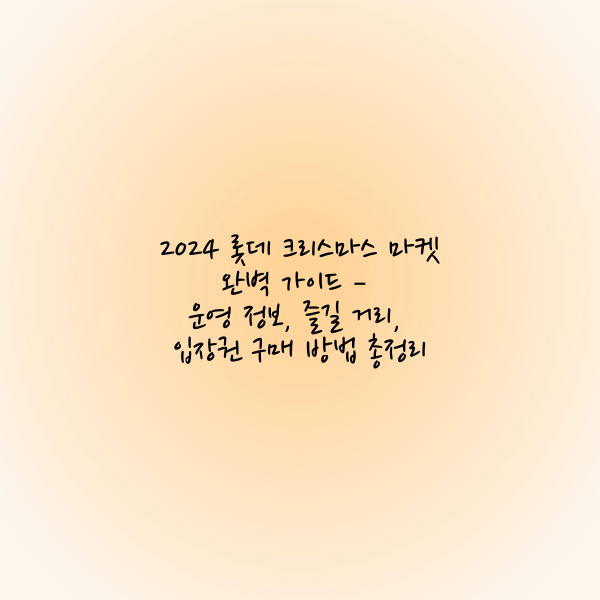 2024 롯데 크리스마스 마켓
완벽 가이드 -
운영 정보, 즐길 거리,
입장권 구매 방법 총정리